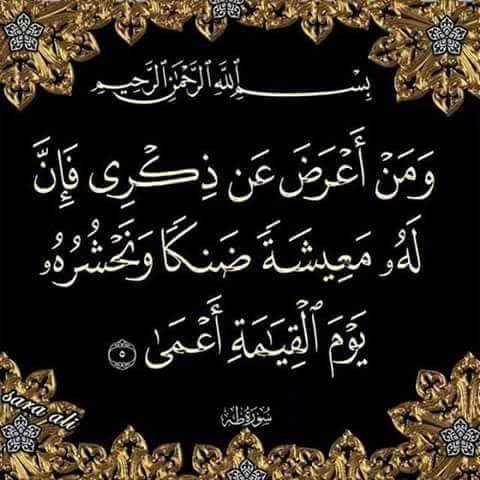 بِسْمِ اللَّهِ الرَّحْمَٰنِ الرَّحِيمِ
وَمَنْ أَعْرَضَ عَن ذِكْرِى فَإِنَّ
لَهُۥ مَعِيشَةً ضَنكًا وَنَحْشُرُهُۥ
يَوْمَ ٱلْقِيَٰمَةِ أَعْمَىٰ ٥
سورة طه
sara ali